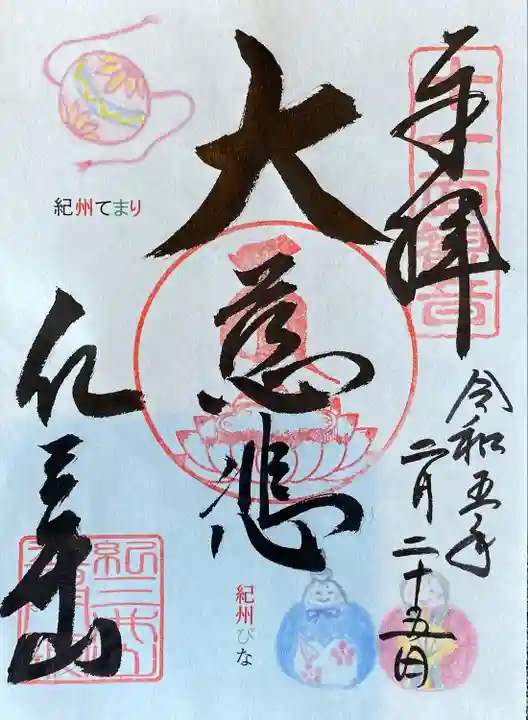 奉拝
十一面観音
令和五年
二月二十五日
大慈悲
紀三井山
紀州てまり
紀州びな